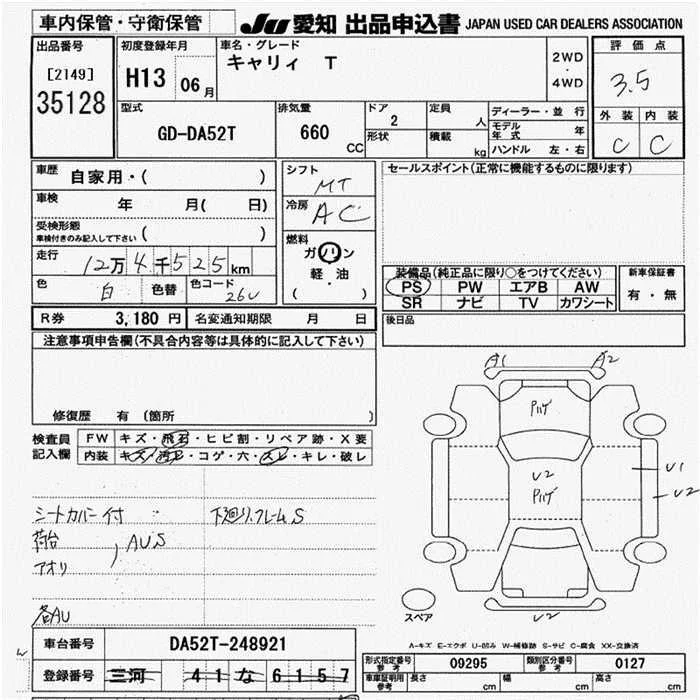 車内保管・守衛保管
JU 愛知 出品申込書 JAPAN USED CAR DEALERS ASSOCIATION
出品番号
[2149]
35128
初度登録年月
H13 06月
車名・グレード
キャリィ T
2WD
・
4WD
評価点
3.5
外装 内装
C C
型式
GD-DA52T
排気量
660
CC
ドア
2
形状
定員
人
積載
kg
ディーラー・並行
モデル年式 年
ハンドル 左・右
車歴
自家用・( )
車検
年 月( 日)
受検形態
車検付きのみ記入して下さい ( )
走行
12万4千525km
色
白
色替
色コード
26U
シフト
MT
冷房
AC
燃料
ガソリン
軽・油
( ・ )
セールスポイント(正常に機能するものに限ります)
装備品(純正品に限り○をつけてください)
PS PW エアB AW
SR ナビ TV カワシート
新車保証書
有・無
後日品
R券 3,180円 名変通知期限 月 日
注意事項申告欄(不具合内容等は具体的に記入して下さい)
修復歴 有 (箇所 )
検査員
記入欄
FW キズ・飛石・ヒビ割・リペア跡・X要
内装 キズ・汚レ・コゲ・穴・スレ・キレ・破レ
シートカバー付
下廻り.フレームS
荷台
アオリ
AUS
各AU
A1 A2
U2
U1
U2
U2
スペア
A-キズ E-エクボ U-凹み W-補修跡 S-サビ C-腐食 XX-交換済
車台番号 DA52T-248921
登録番号 三河 41 な 6157
形式指定番号
参考
09295
類別区分番号
参考
0127
車庫証明用
参考
長さ cm 幅 cm 高さ cm